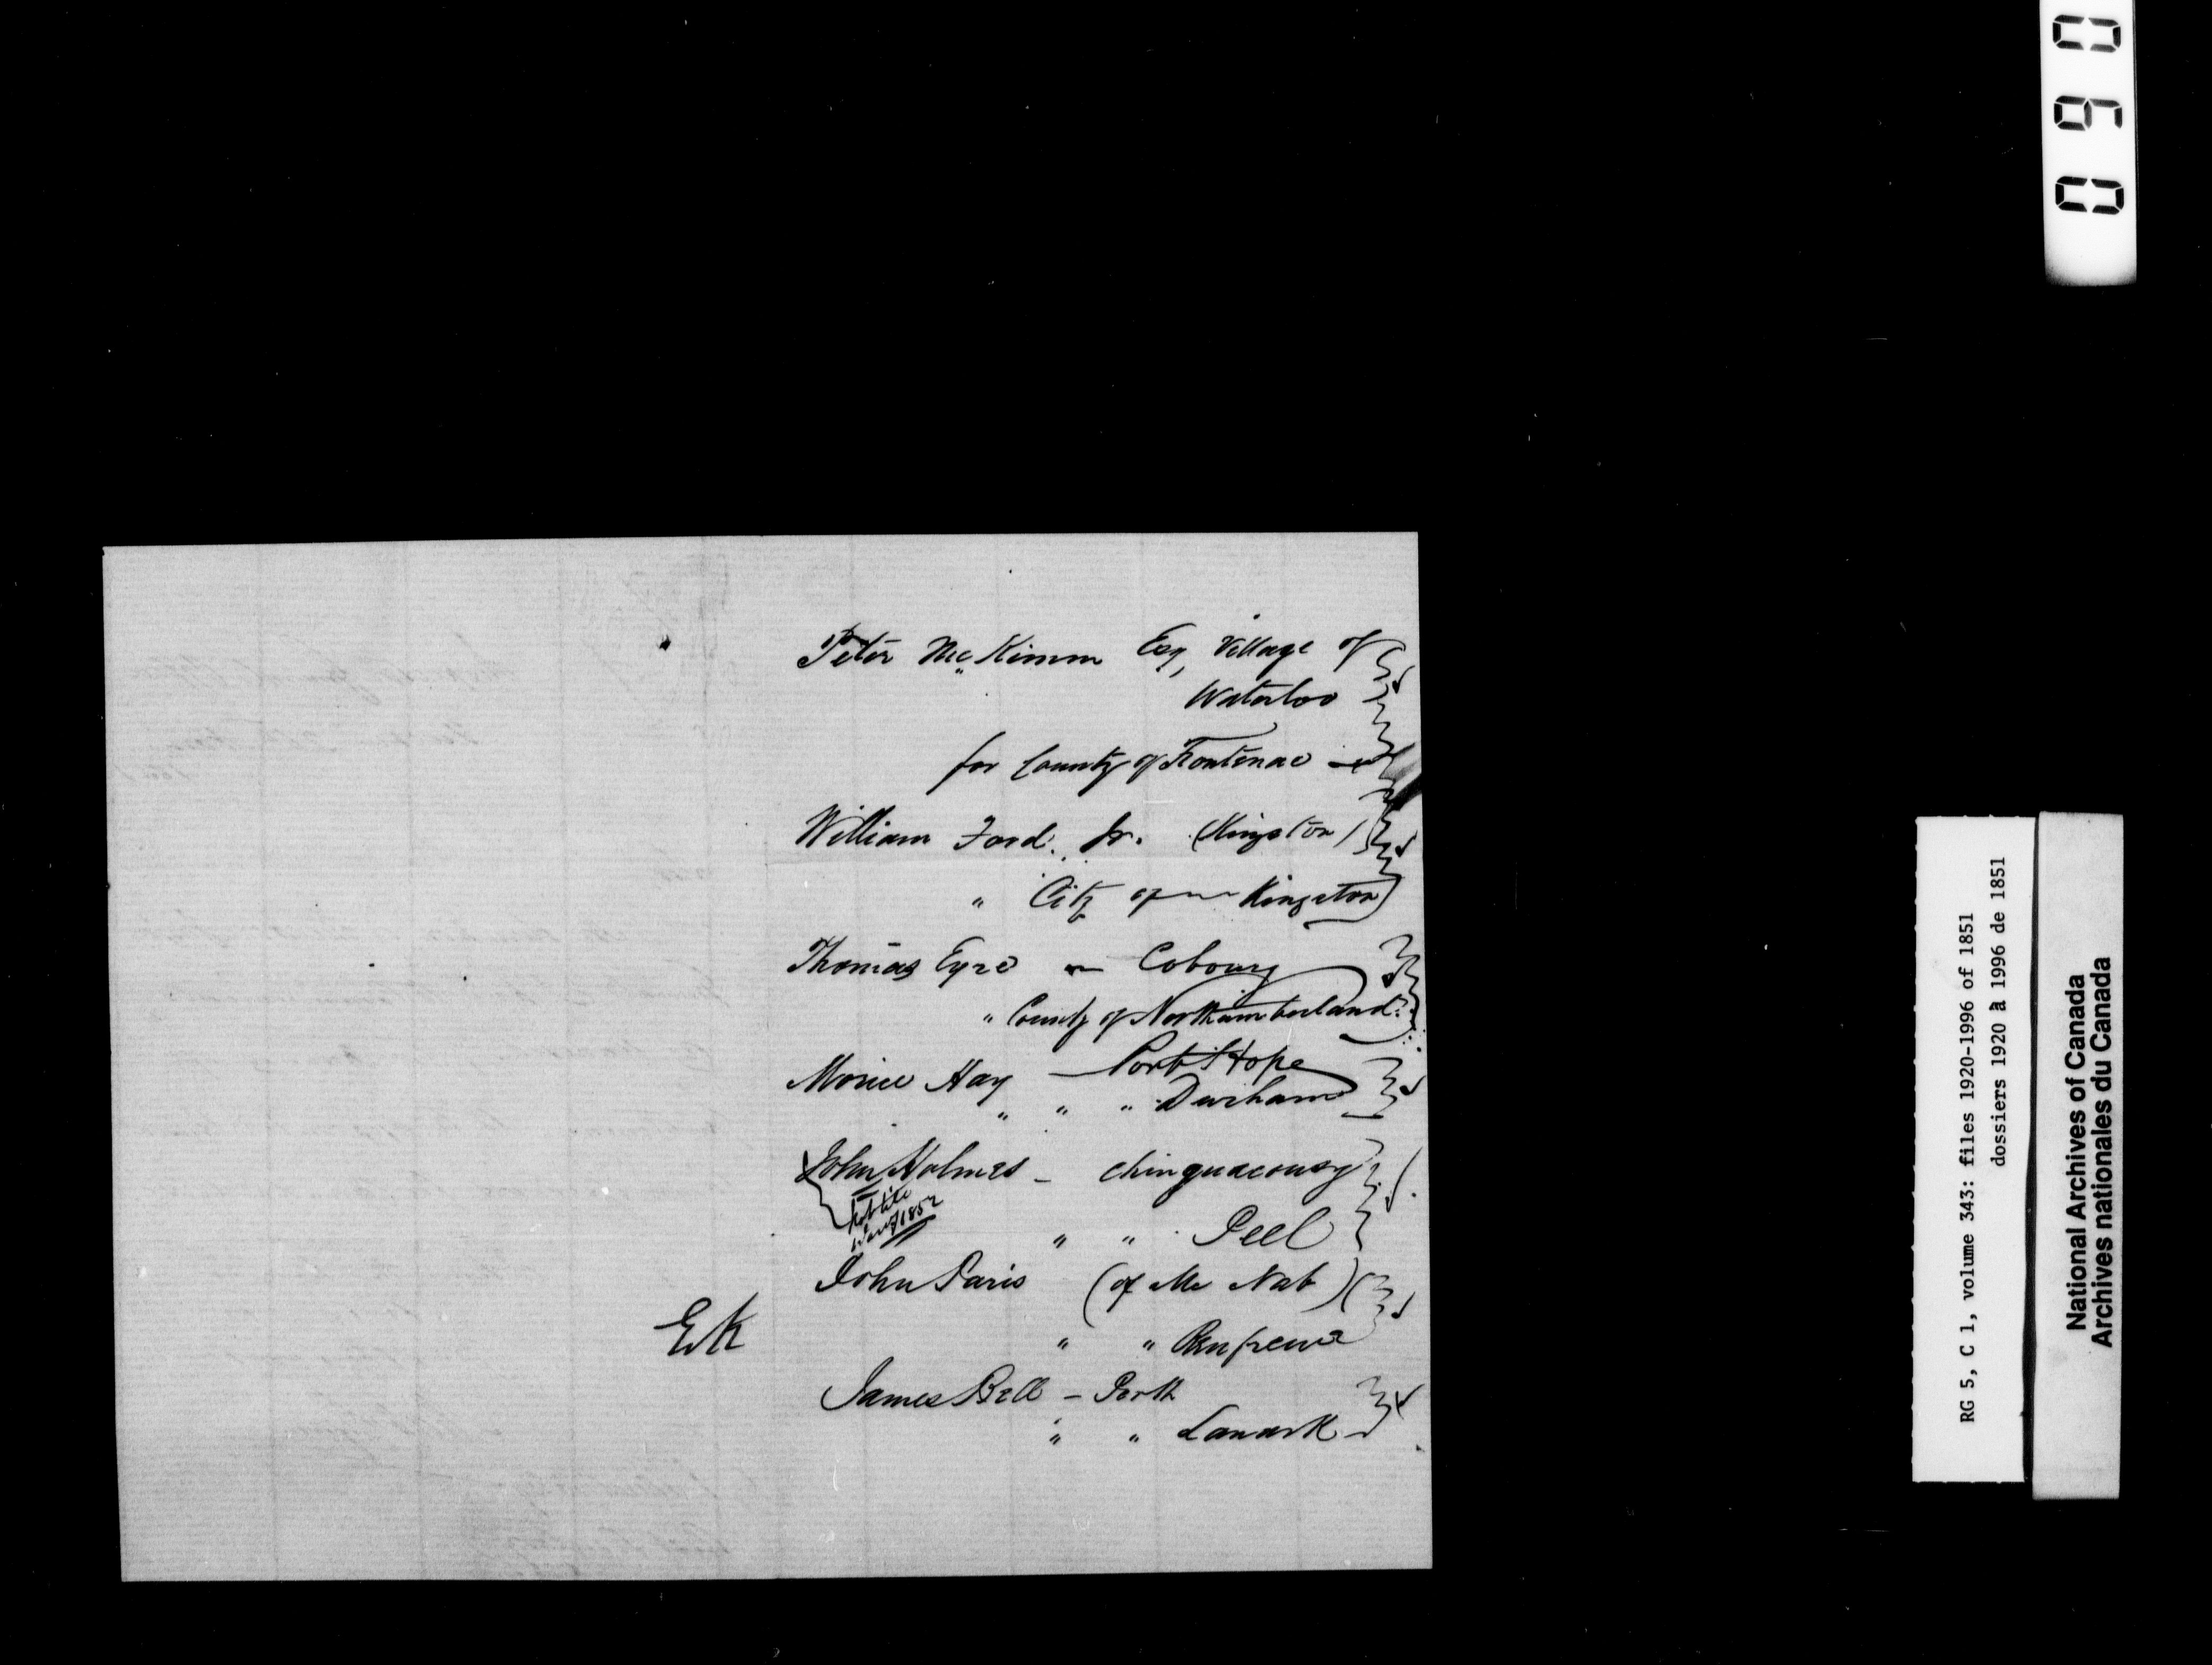 Peter McKimm Esq, Village of
Waterloo
for County of Frontenac
William Ford. Jr. (Kingston)
" City of Kingston
Thomas Eyre - Cobourg
" County of Northumberland
Morice Hay - Port Hope
" " " Durham
John Holmes - Chinguacousy
1852
" " Peel
John Paris (of Mc Nab)
" " Renfrew
EK
James Bell - Perth
" " Lanark
0690
RG 5, C 1, volume 343: files 1920-1996 of 1851
dossiers 1920 à 1996 de 1851
National Archives of Canada
Archives nationales du Canada